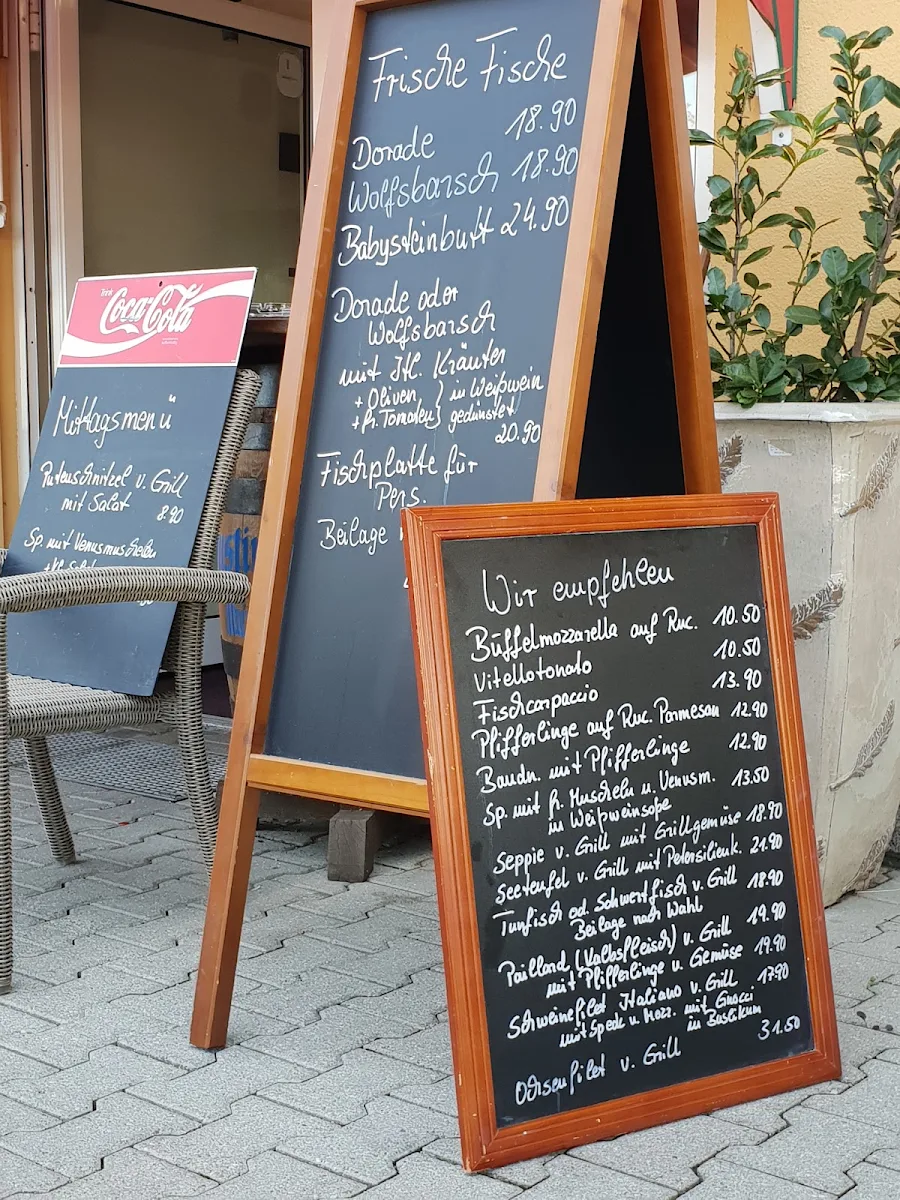 Frische Fische
Dorade 18.90
Wolfsbarsch 18.90
Babysteinbutt 24.90
Dorade oder
Wolfsbarsch
mit Itl. Kräuter
+ Oliven } in Weißwein
+ fr. Tomaten } gedünstet
20.90
Fischplatte für
Pers.
Beilage
Trink
Coca-Cola
Mittagsmenü
Putenschnitzel v. Grill
mit Salat 8.90
Sp. mit Venusmuscheln
Wir empfehlen
Büffelmozzarella auf Ruc. 10.50
Vitellotonato 10.50
Fischcarpaccio 13.90
Pfifferlinge auf Ruc. Parmesan 12.90
Bandn. mit Pfifferlinge 12.90
Sp. mit fr. Muscheln u. Venusm. 13.50
in Weißweinsoße
Seppie v. Grill mit Grillgemüse 18.90
Seeteufel v. Grill mit Petersilienk. 21.90
Tunfisch od. Schwertfisch v. Grill 18.90
Beilage nach Wahl
Paillard (Kalbsfleisch) v. Grill 19.90
mit Pfifferlinge u. Gemüse 19.90
Schweinefilet Italiano v. Grill 17.90
mit Speck u. Mozz. mit Gnocci
in Basilikum
Ochsenfilet v. Grill 31.50